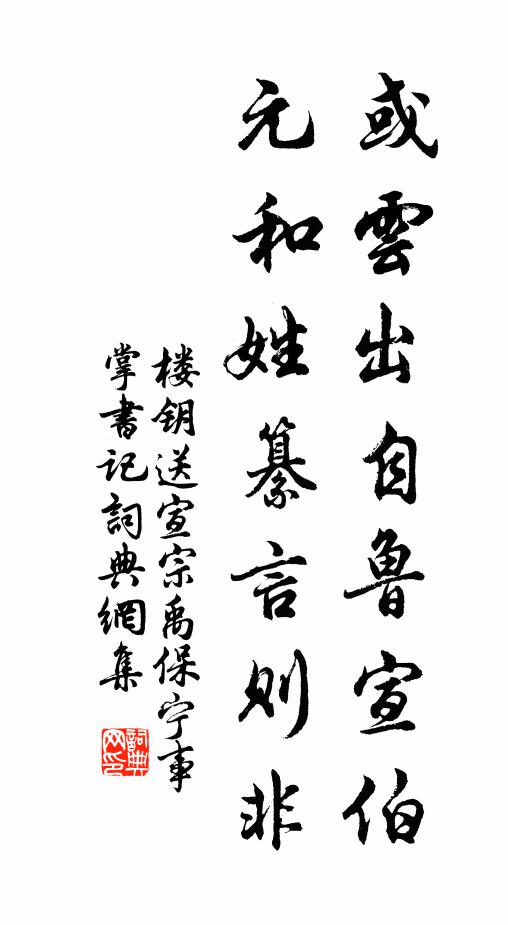 或雲出自魯宣伯
元和姓纂言則非
楼钥送宣宗禹保宁事
掌書记詞典網集
詞典网印